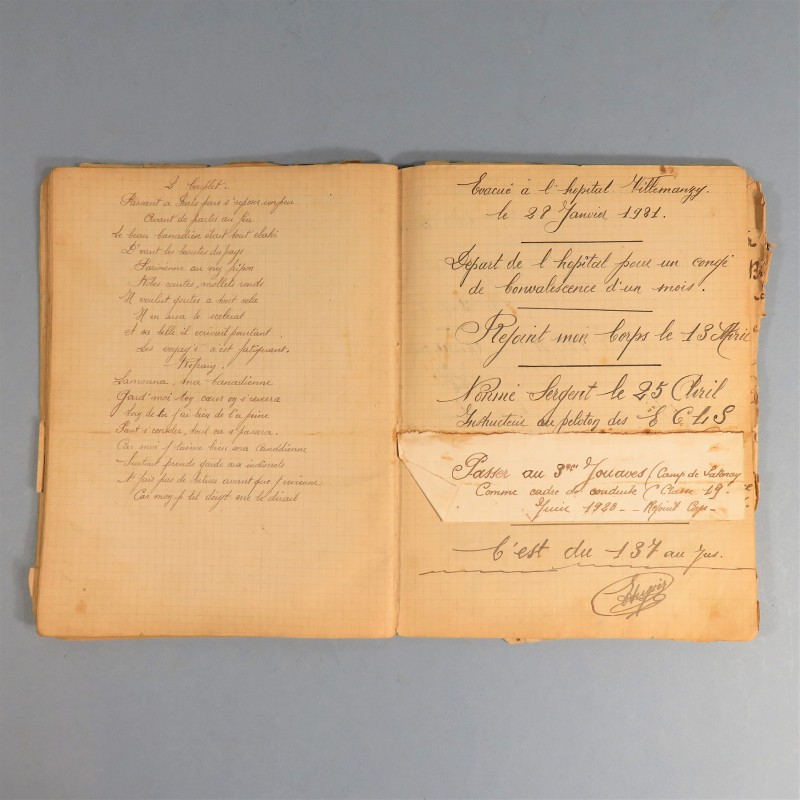 2 Couplet.
Passant a pour s'reposer un peu
Avant de partir au feu
Le beau Canadien était tout ébahi
D'vant les beautés du pays
Parisienne au
Nolles courtes, mollets ronds
Il voulut gouter a tout cela
Il en usa le scelerat
et sa belle il ecrivait pourtant
Les voyag's c'est fatiguant.
Refrain.
Lamonna, ma Canadienne
Gard' moi ton cœur on s'reverra
Loin de toi j'ai bien de la peine
Faut s'consoler, tout ca s'passera.
Car moi j't'aime bien ma Canadienne
Surtout prends garde aux indiscrets
N'fais pas de betises avant que j'revienne
Car mon p'tit doigt me le dirait
Evacué à l'hopital Villemanzy.
le 28 Janvier 1921.
Depart de l'hôpital pour un congé
de Convalescence d'un mois.
Rejoint mon Corps le 13 Avril
Nommé Sergent le 25 Avril
Instructeur au peloton des E C L S
Passer au 3eme Zouaves (Camp de Sathonay
Comme cadre de conduite (Classe 19
Juin 1920 - Rejoint Corps
C'est du 137 au Jus.